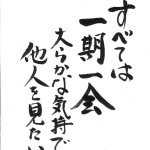 すべては
一期一会
大らかな気持で
他人を見たい